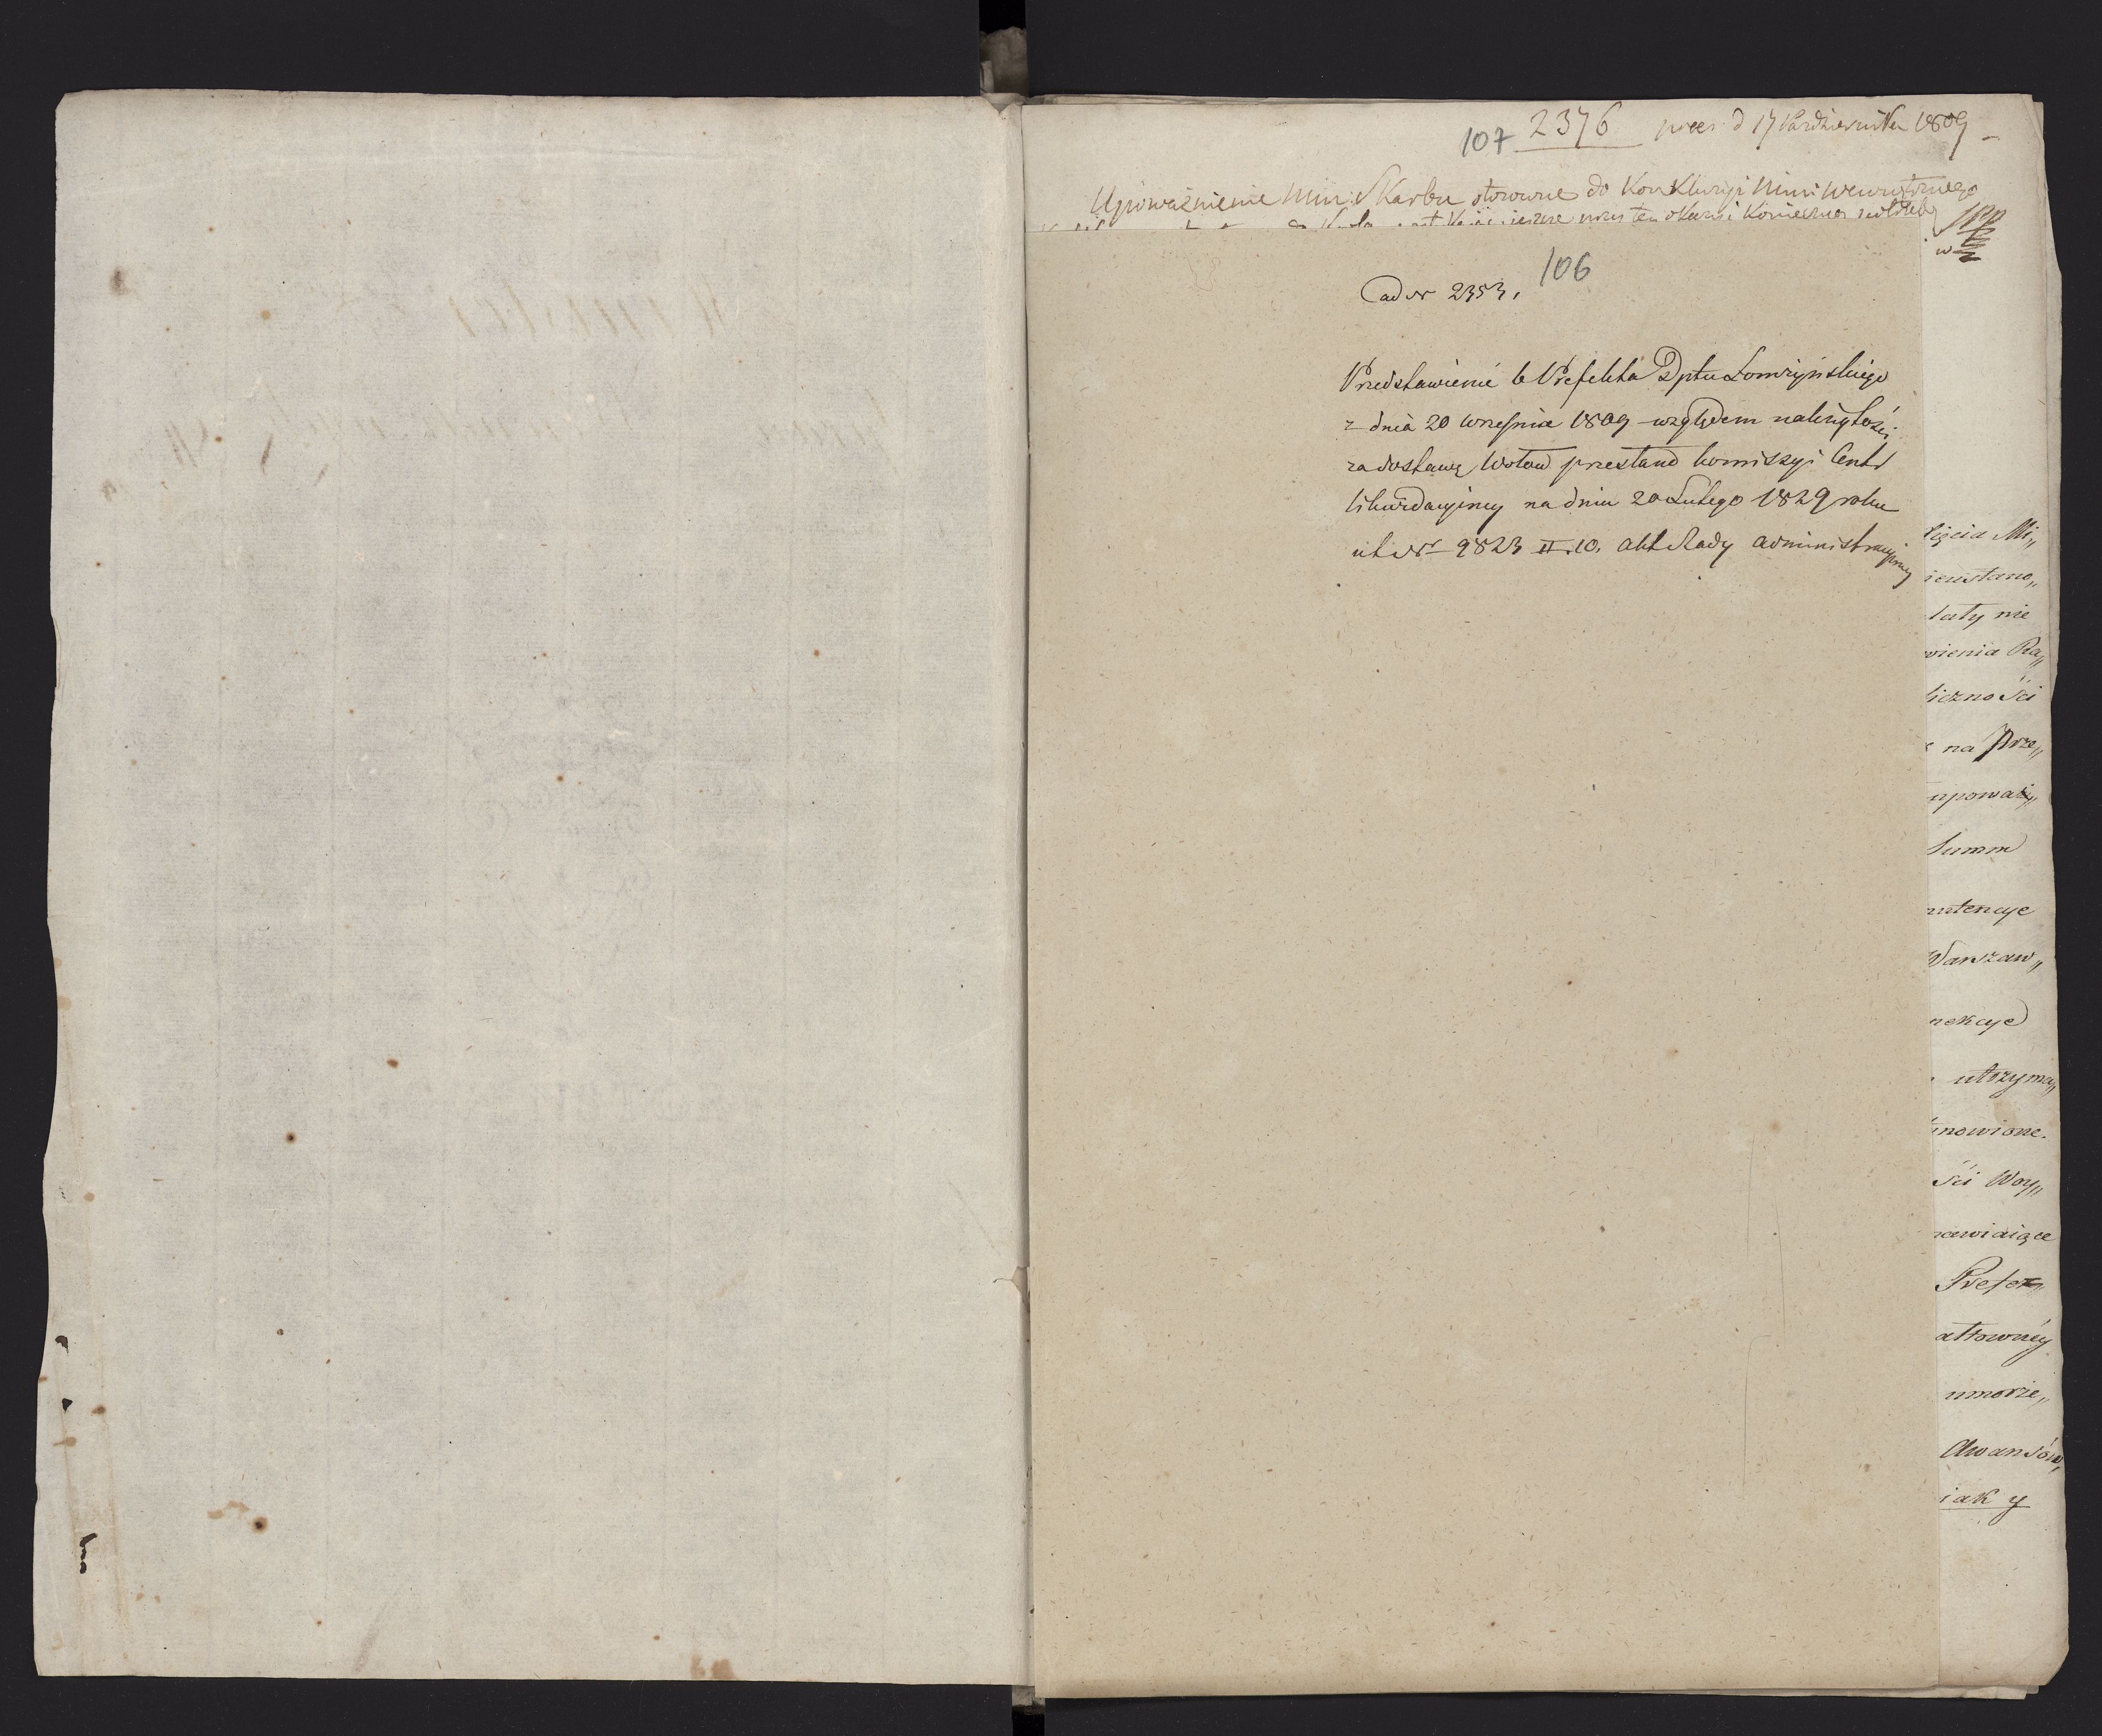 107 2376 prees d 17 Października 1809
Upoważnienie Min: Skarbu stosowne do Konkluzyi Mini: Wewnętrznego
106
ad Nr 2353.
Przedstawienie b Prefekta Dptu Łomżyńskiego
z dnia 20 września 1809 względem należytości
za dostawę wołów przesłano kommiszyi Centr
likwidacyiney na dniu 20 Lutego 1829 roku
ut Nr 9823 II. 10. akt Rady administracyjney
ięcia Mi„
iaty nie
wienia Ra„
liczności
na Prze„
upoważ„
Summ
Warszaw„
utrzyma„
nowione.
ści Woy„
Prefek„
umorze„
Awansów,
iak y